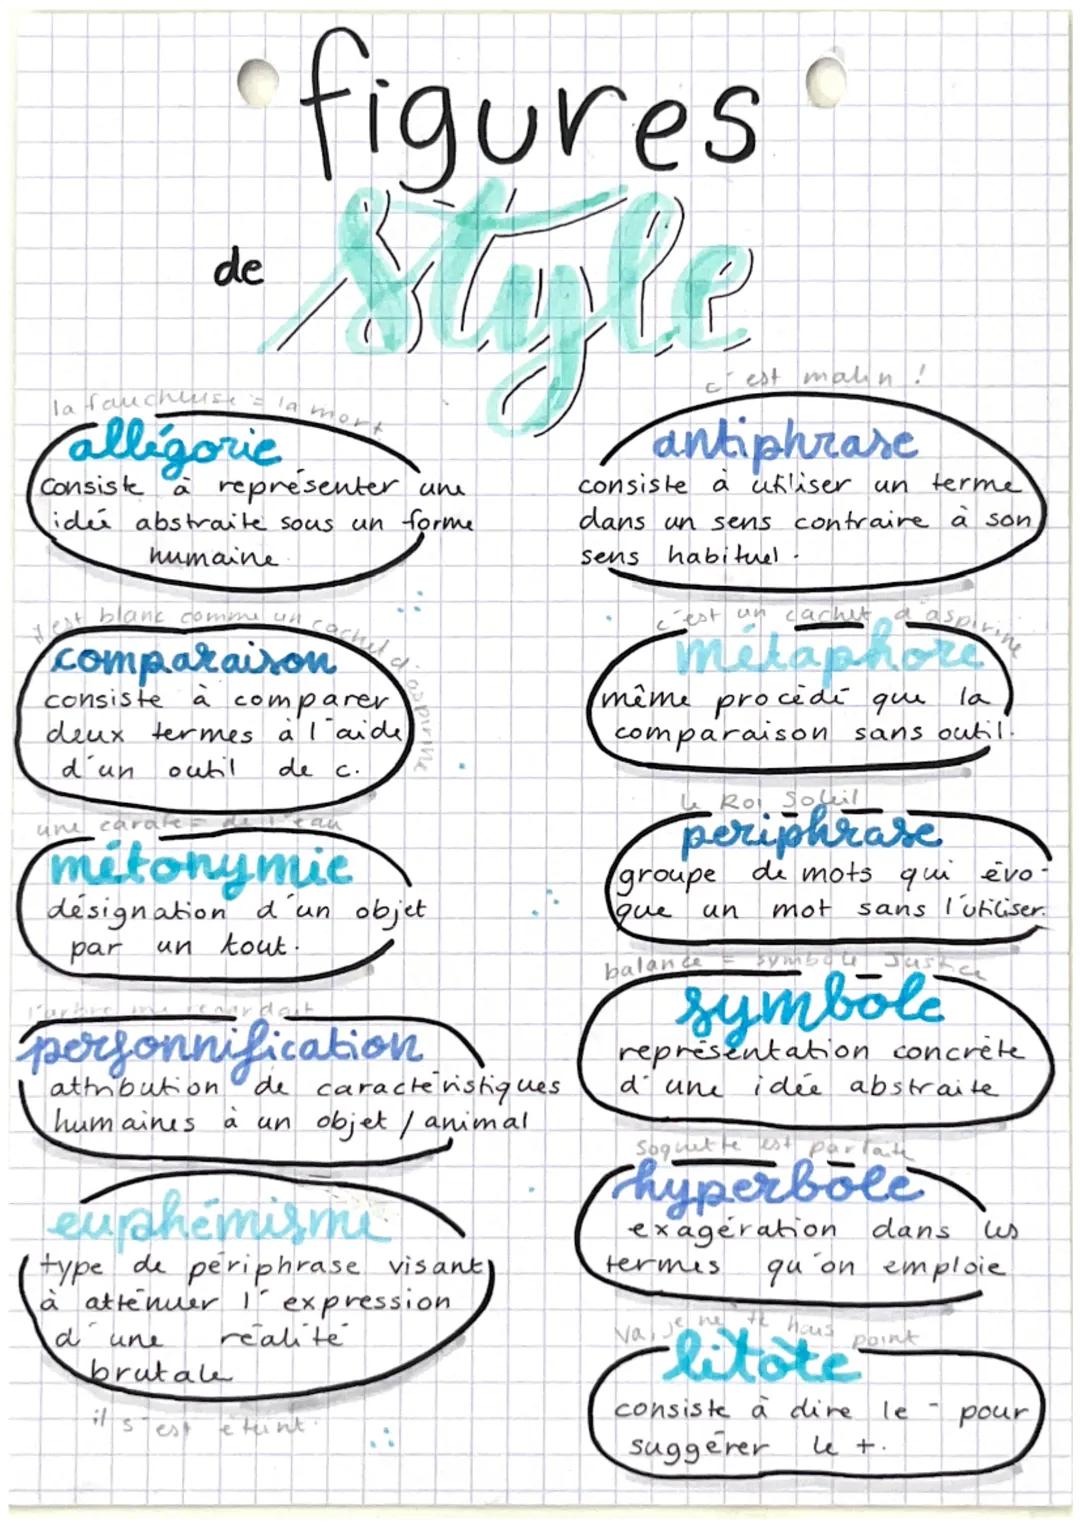 figures
de style
la faucheuse = la mort
allégorie
consiste à représenter une
idée abstraite sous un forme
humaine.
il est blanc comme un cachet d'aspirine
comparaison
consiste à comparer
deux termes à l'aide
d'un outil de c.
une carafe = de l'eau
métonymie
désignation d'un objet
par un tout.
l'arbre me regardait
personnification
attribution de caractéristiques
humaines à un objet / animal
euphémisme
type de périphrase visant
à atténuer l'expression
d'une réalité
brutale
il s'est éteint.
c'est malin !
antiphrase
consiste à utiliser un terme
dans un sens contraire à son
sens habituel.
c'est un cachet d'aspirine
métaphore
même procédé que la
comparaison sans outil.
le Roi Soleil
periphrase
groupe de mots qui évo-
que un mot sans l'utiliser.
balance = symbole Justice
symbole
représentation concrète
d'une idée abstraite
est parfaite
hyperbole
exagération dans les
termes qu'on emploie
Va, je ne te hais point
litote
consiste à dire le - pour
suggérer le +.